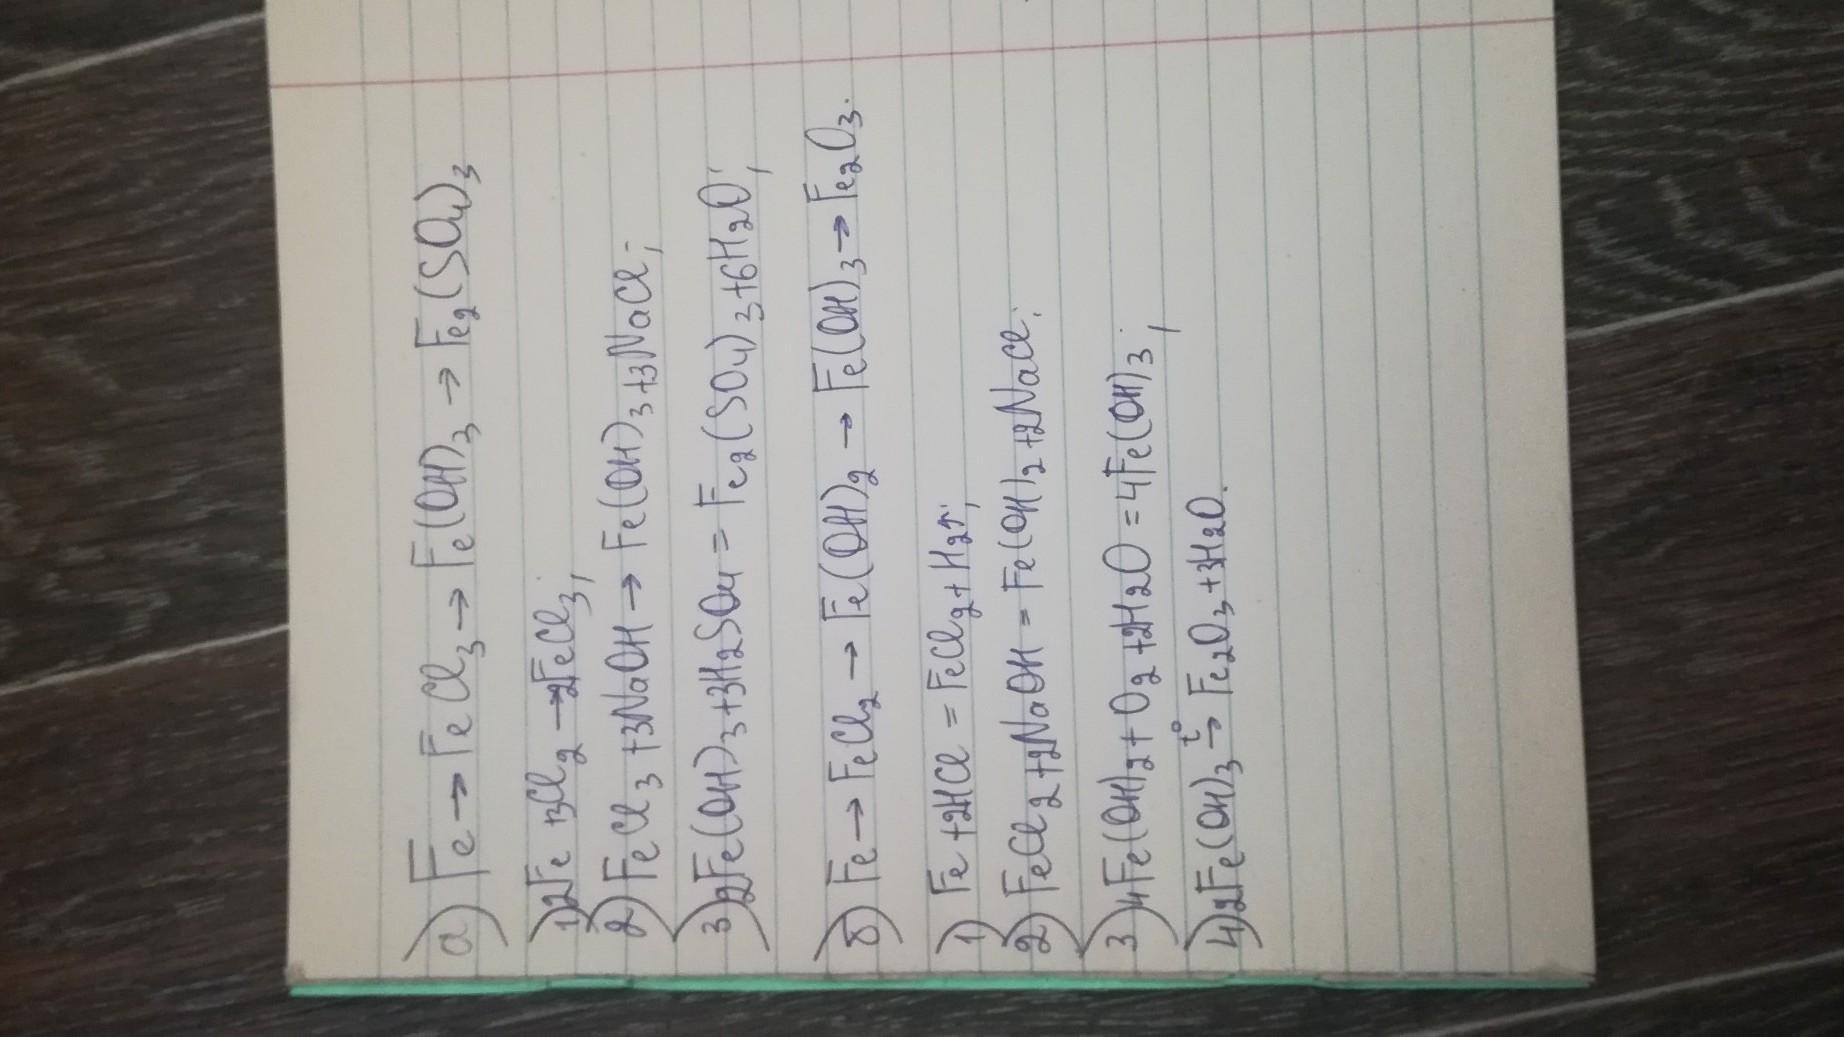 а) Fe → FeCl₃ → Fe(OH)₃ → Fe₂(SO₄)₃
1) 2Fe + 3Cl₂ → 2FeCl₃;
2) FeCl₃ + 3NaOH → Fe(OH)₃ + 3NaCl;
3) 2Fe(OH)₃ + 3H₂SO₄ = Fe₂(SO₄)₃ + 6H₂O;
б) Fe → FeCl₂ → Fe(OH)₂ → Fe(OH)₃ → Fe₂O₃.
1) Fe + 2HCl = FeCl₂ + H₂↑;
2) FeCl₂ + 2NaOH = Fe(OH)₂ + 2NaCl;
3) 4Fe(OH)₂ + O₂ + 2H₂O = 4Fe(OH)₃;
4) 2Fe(OH)₃ →t° Fe₂O₃ + 3H₂O.